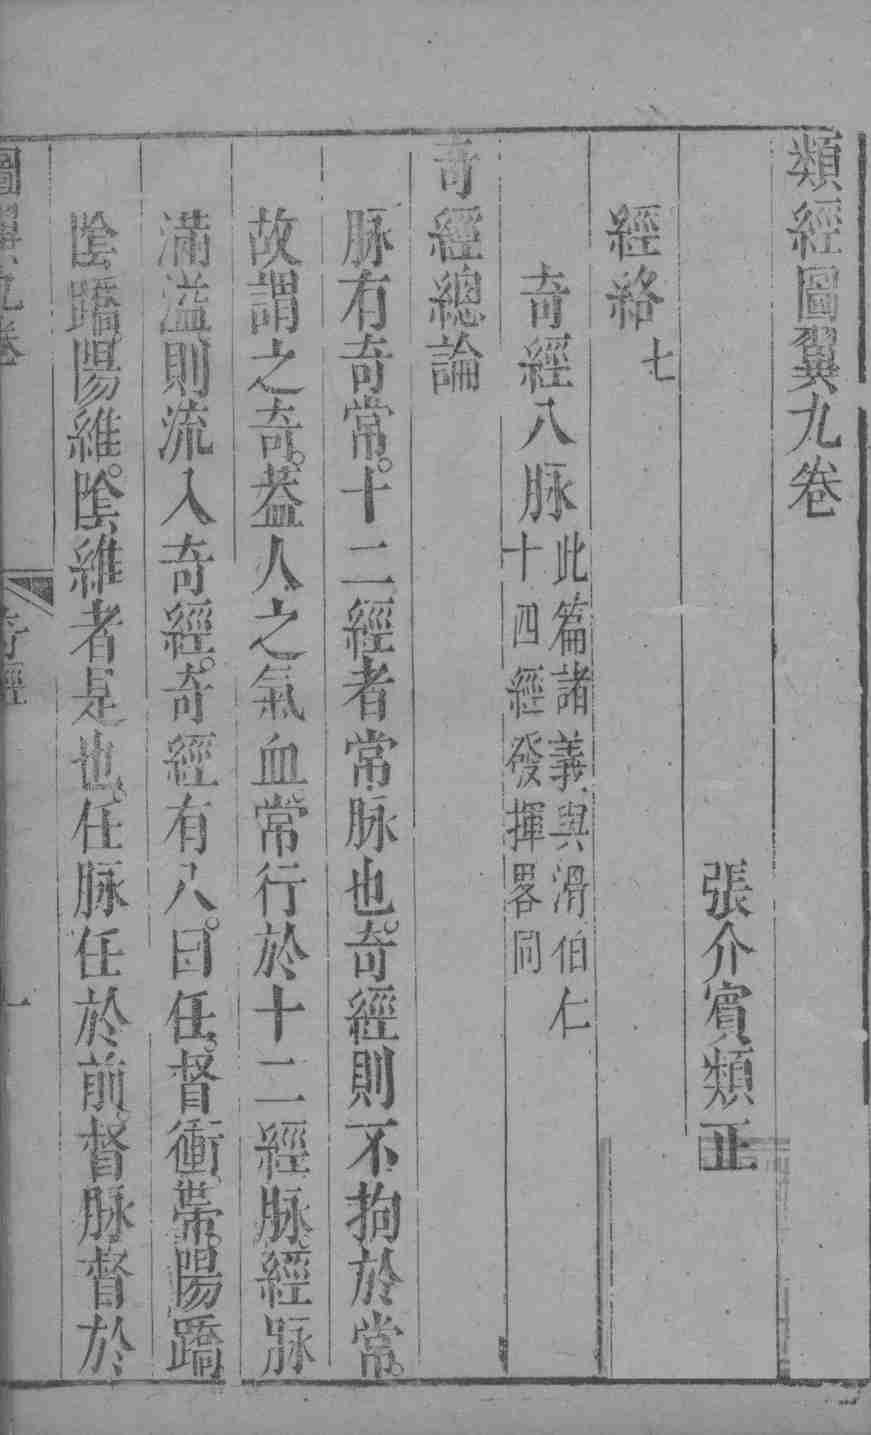 類經圖翼九卷
張介賓類正
經絡七
奇經八脉此篇諸義與滑伯仁十四經發揮畧同
奇經總論
脉有奇常。十二經者常脉也。奇經則不拘於常。
故謂之奇。葢人之氣血。常行於十二經脉經脉
滿溢則流入奇經。奇經有八。曰任。督衝。帶。陽蹻
陰蹻。陽維。陰維者是也。任脉任於前。督脉督於
圖翼九卷 奇經 一